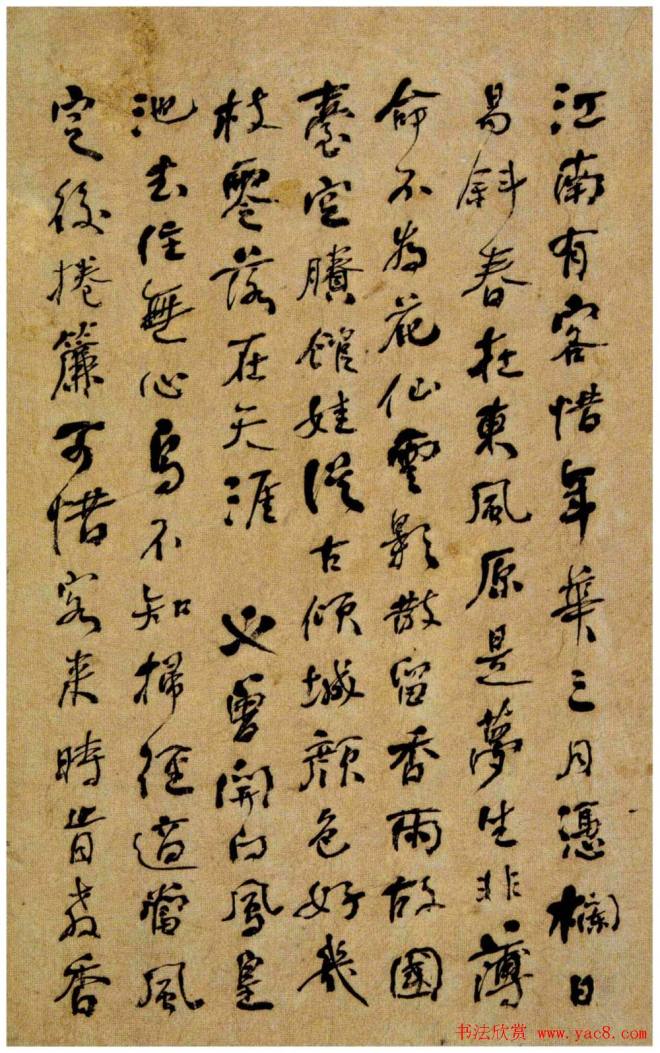 江南有客惜年華三月憑欄日
易斜春在東風原是夢生非薄
命不為花仙雲影散留香雨故國
臺空賸館娃從古傾城顏色好幾
枝零落在天涯 又曾開向鳳皇
池去住無心鳥不知掃徑適當風
定後捲簾可惜客來時肯教香
书法欣赏 www.yac8.com